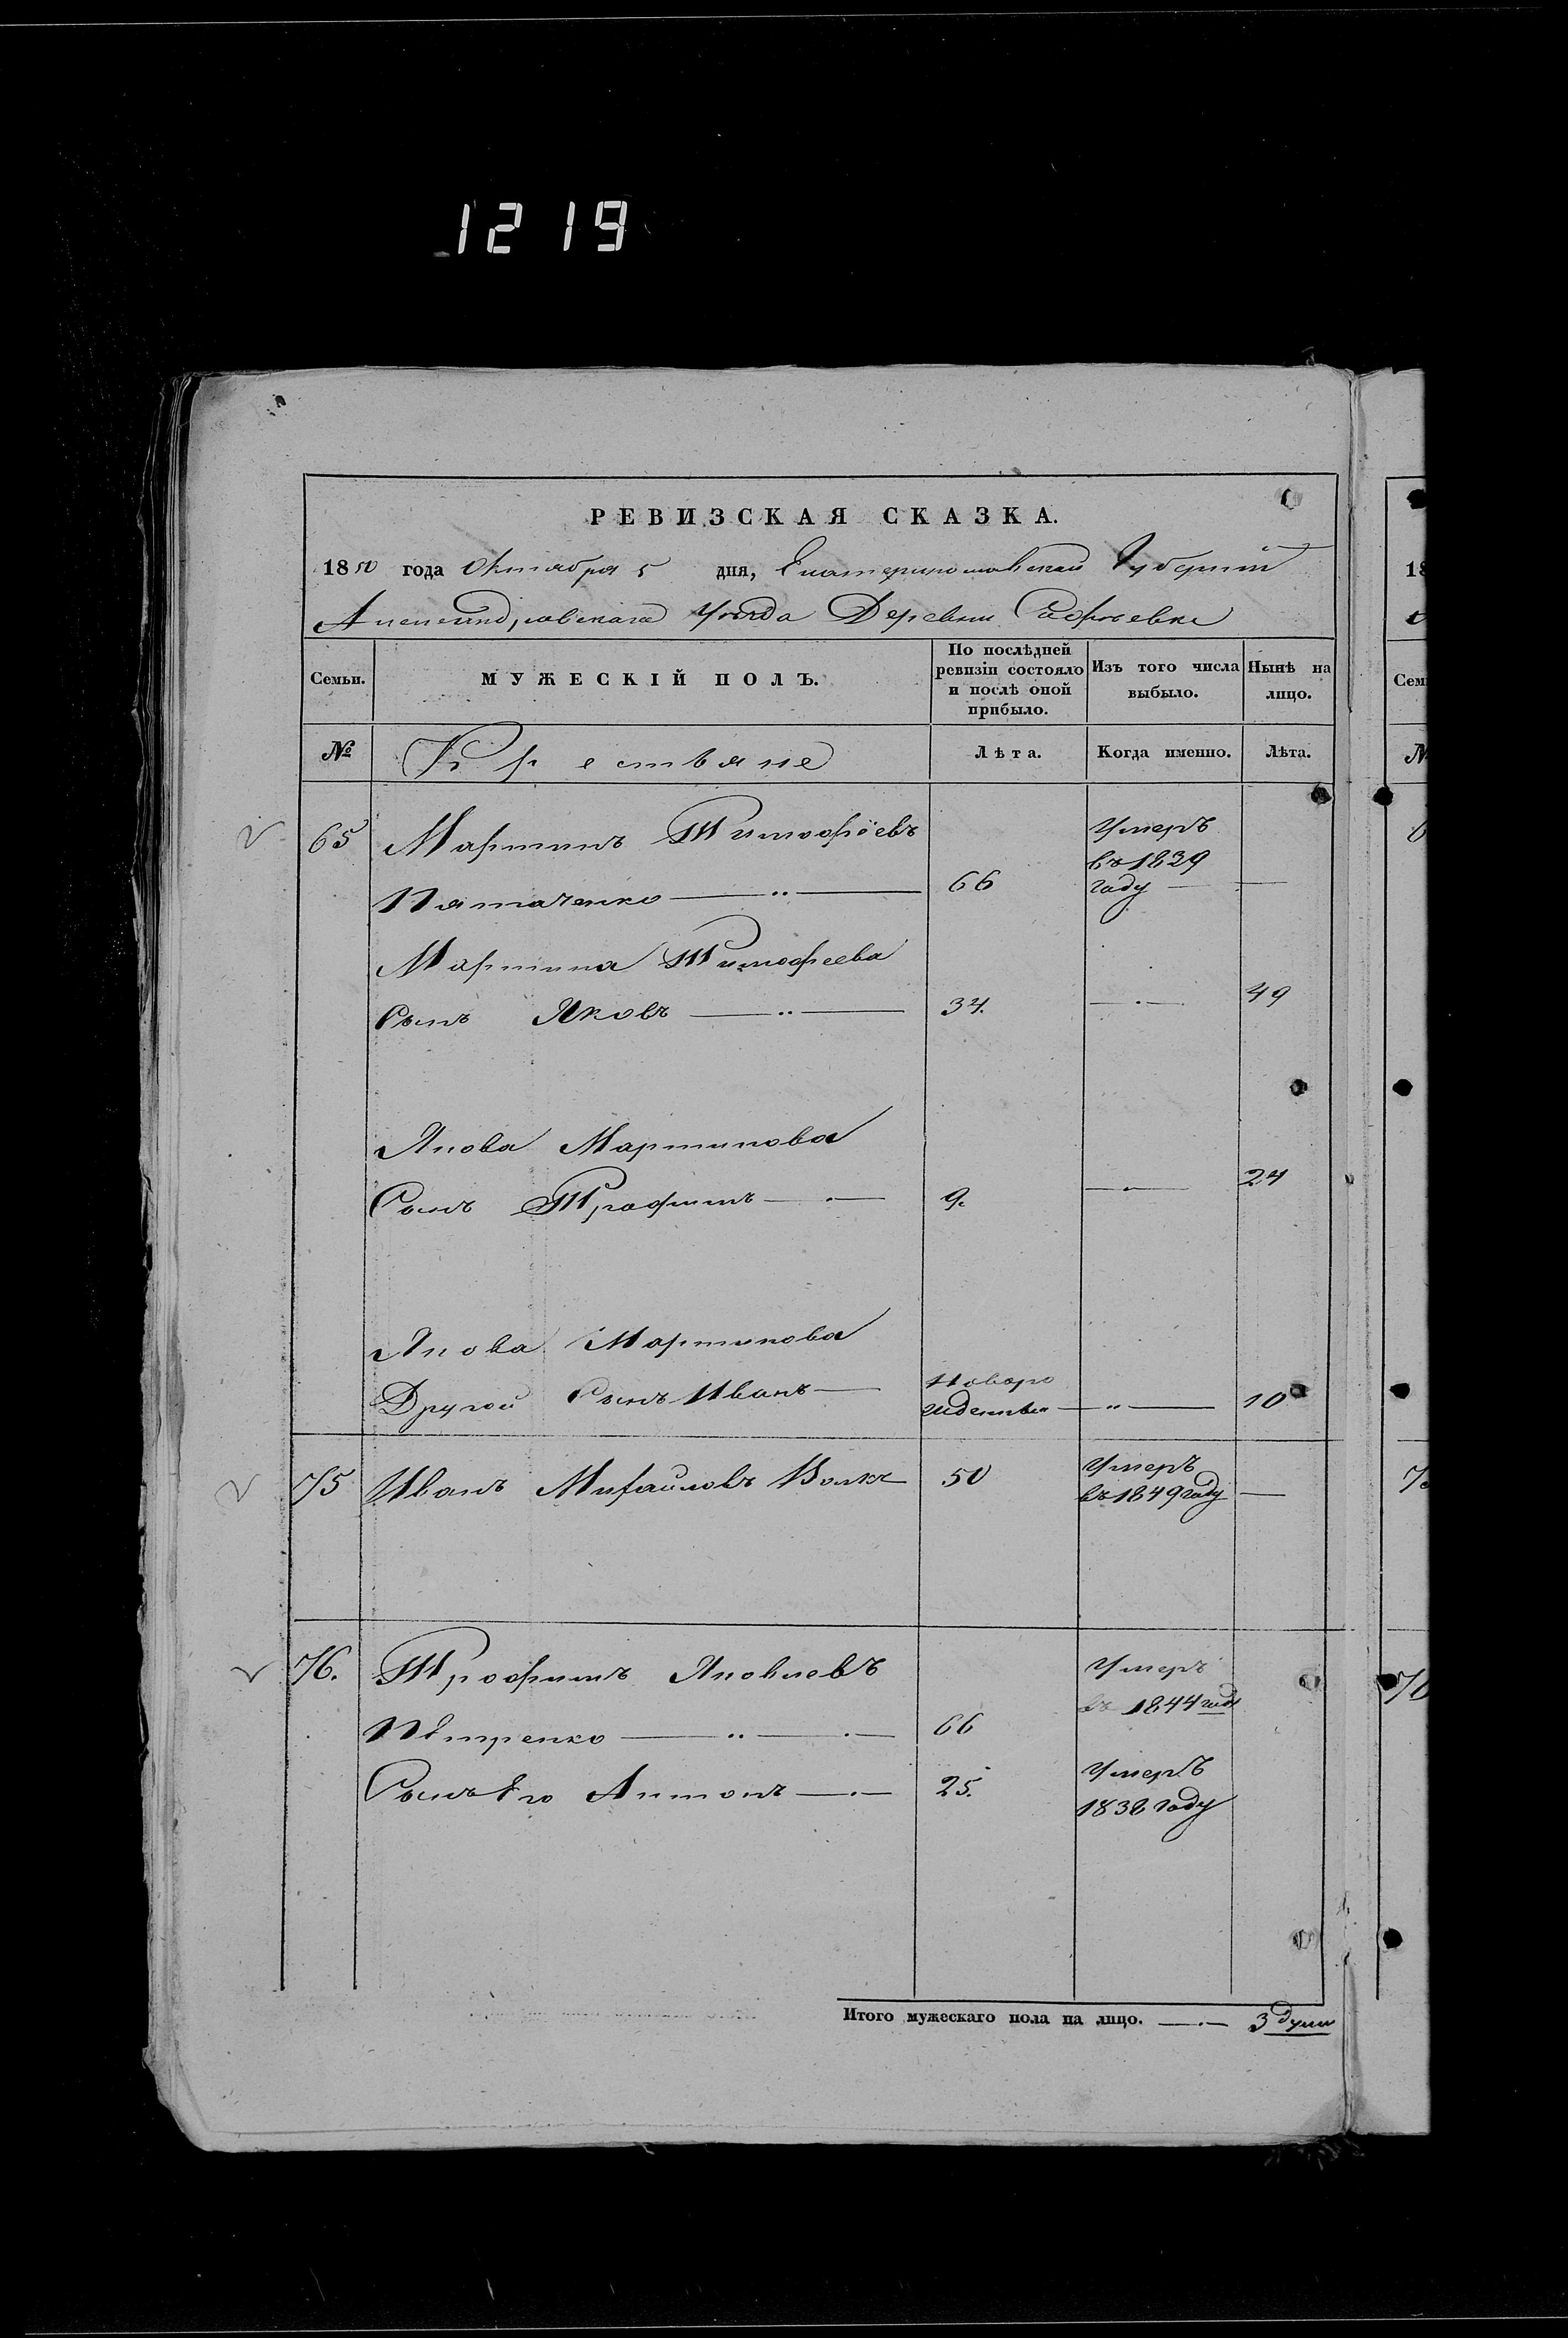 1219
РЕВИЗСКАЯ СКАЗКА.
1850 года Октября 5 дня, Екатеринославской Губернiй
Александровскаго Уѣзда Деревни
Семьи. МУЖЕСКІЙ ПОЛЪ. По послѣдней ревизіи состояло и послѣ оной прибыло. Изъ того числа выбыло. Нынѣ на лицо.
№ Крествяне Лѣта. Когда именно. Лѣта.
65 Мартинъ Тимофѣевъ Умеръ
въ 1839
Пятаченко 66 году
Мартина Тимофеева
Сынъ Яковъ 34. 49
Якова Мартинова
Сынъ Трофимъ 9. 24
Якова Мартинова
Другой Сынъ Иванъ Новорожденный 10
75 Иванъ Михайловъ Волкъ 50 Умеръ
въ 1849 году
76. Трофимъ Яковлевъ Умеръ
въ 1844 году
Петренко 66
Сынъ Его Антонъ 25. Умеръ
1838 году
Итого мужескаго пола на лицо. 3 души
18
Сем
№
6
7
76